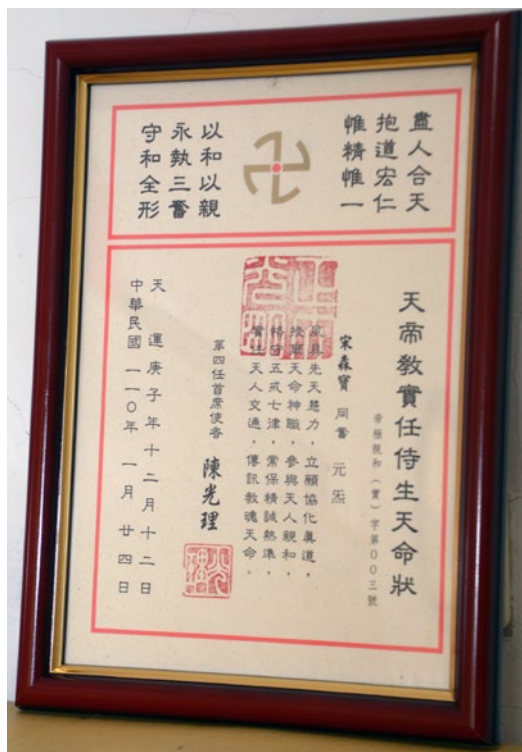 盡人合天
抱道宏仁
惟精惟一
以和以親
永執三奮
守和全形
天帝教實任侍生天命狀
帝極親和（實）字第００三號
宋森寶 同奮 元炁
夙具先天慧力，立願協化真道，
接受天命神職，參與天人親和，
恪守五戒七律，常保精誠熱準，
實任天人交通，傳訊教魂天命。
第四任首席使者 陳光理
天 運庚子年十二月十二日
中華民國一一０年一月廿四日